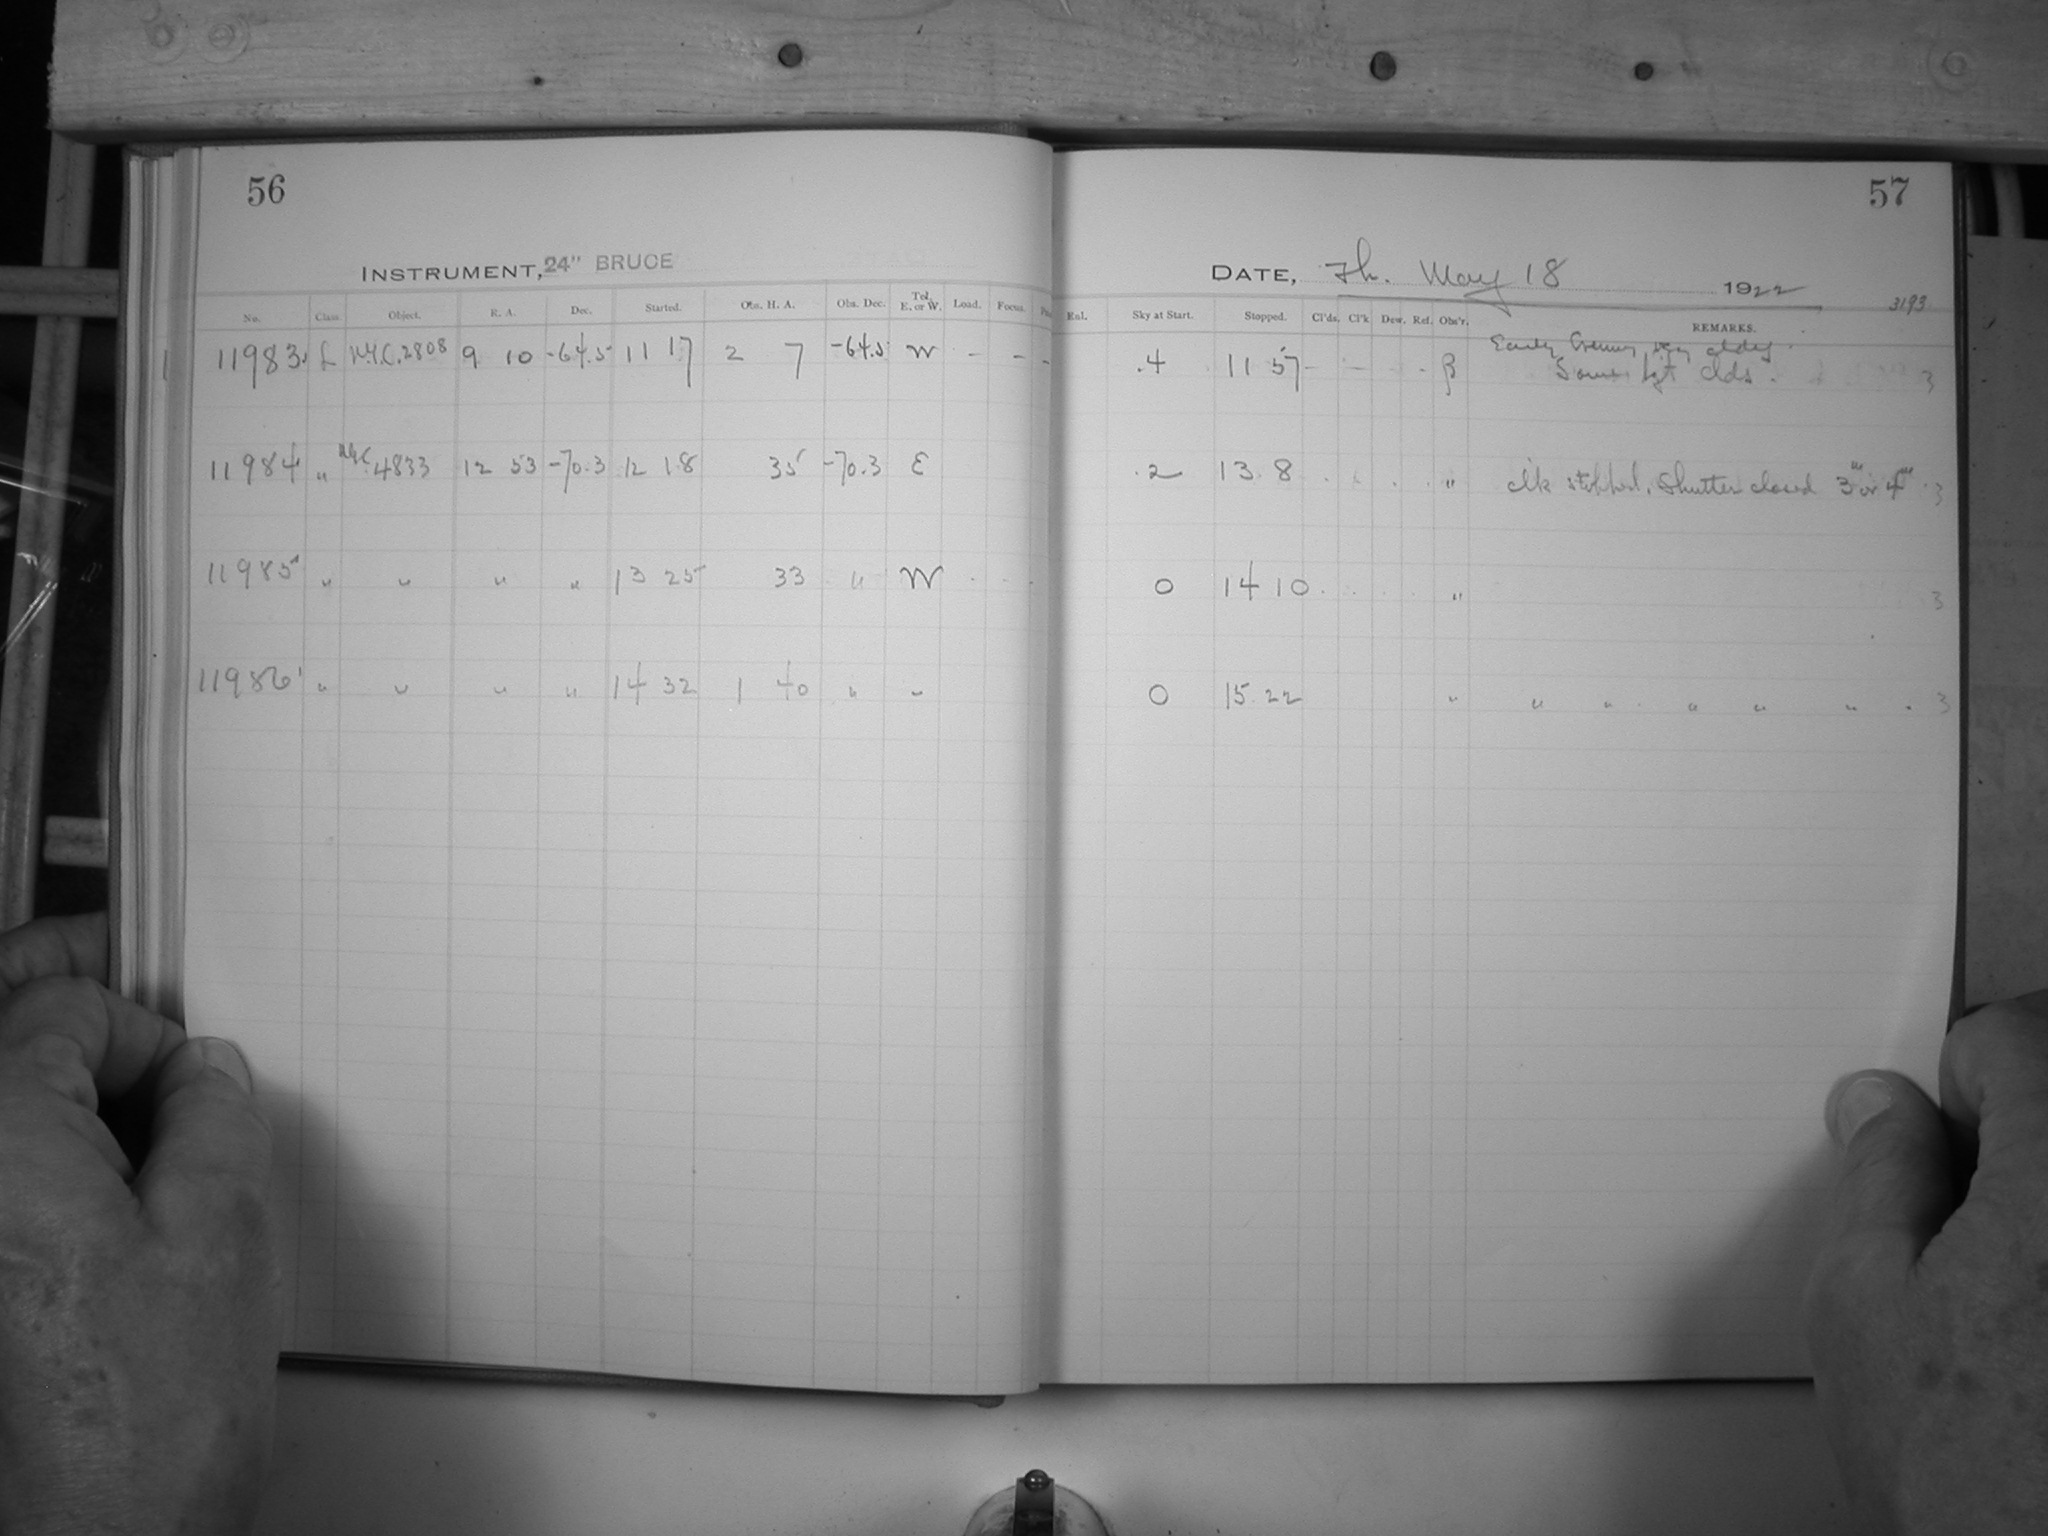 56
57
INSTRUMENT, 24" BRUCE
DATE, Th. May 18 1922
3193
No. Class. Object. R. A. Dec. Started. Obs. H. A. Obs. Dec. Tel. E. or W. Load. Focus.
Enl. Sky at Start. Stopped. Cl'ds. Cl'k Dew. Ref. Obs'r. REMARKS.
Early Evening very cldy.
1 11983 L N.G.C. 2808 9 10 -64.5 11 17 2 7 -64.5 W - - - .4 11 57 - - - β Some lgt clds. 3
11984 " N.G.C. 4833 12 53 -70.3 12 18 35 -70.3 E .2 13 8 " clk stopped. Shutter closed 3m or 4m. 3
11985 " " " " 13 25 33 " W 0 14 10 " 3
11986 " " " " 14 32 1 40 " " 0 15 22 " " " " " " 3